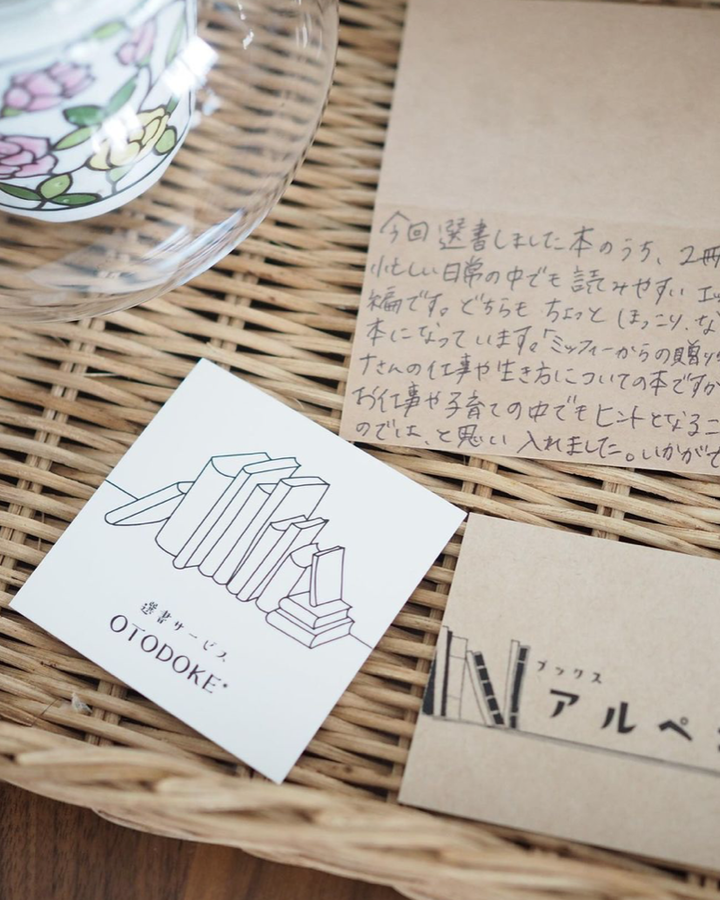 今回選書しました本のうち、2冊
忙しい日常の中でも読みやすい
編です。どちらもちょっとほっこり、な
本になっています。「ミッフィーからの贈り
ナさんの仕事や生き方についての本ですが
お仕事や子育ての中でもヒントとなるこ
のでは、と思い入れました。いかがで
選書サービス
OTODOKE*
ブックス
アルペ